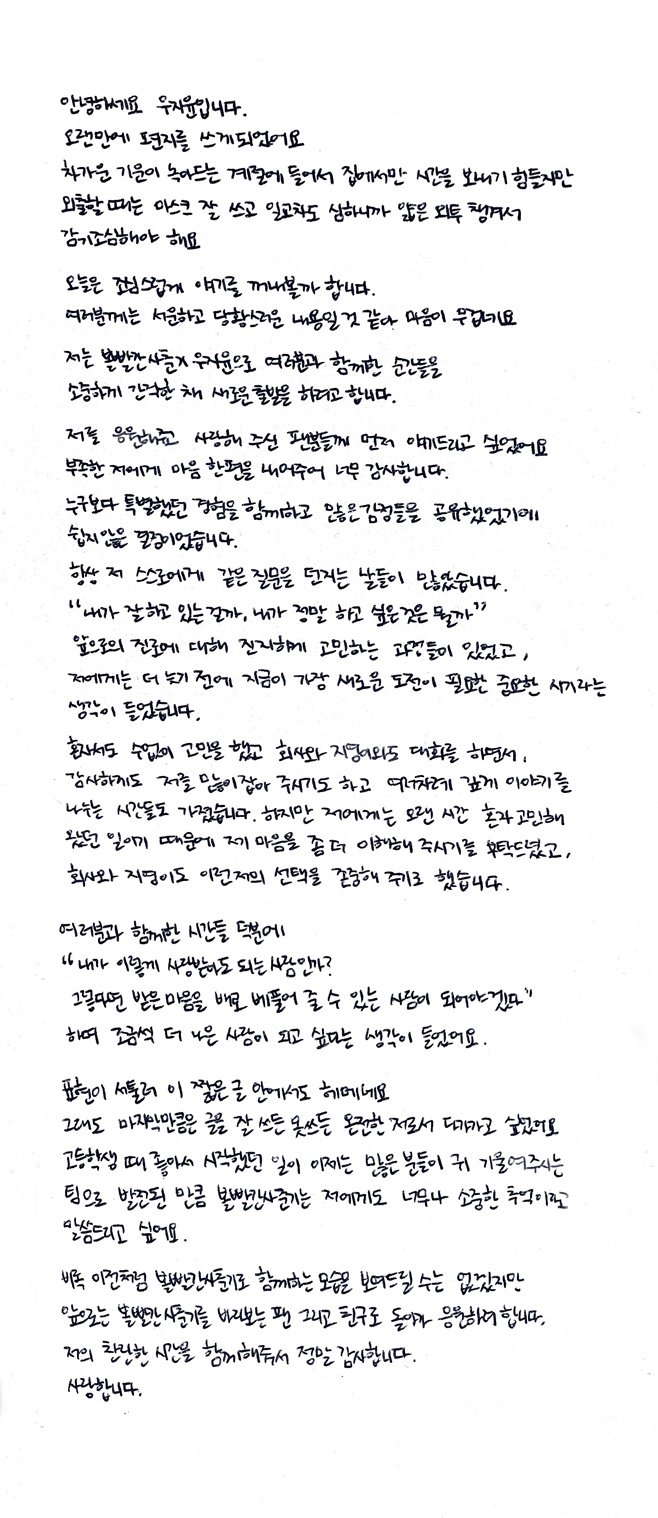 안녕하세요 우지윤입니다.
오랜만에 편지를 쓰게되었어요
차가운 기운이 녹아드는 계절에 들어서 집에서만 시간을 보내기 힘들지만
외출할 때는 마스크 잘 쓰고 일교차도 심하니까 얇은 외투 챙겨서
감기조심해야 해요
오늘은 조심스럽게 얘기를 꺼내볼까 합니다.
여러분께는 서운하고 당황스러운 내용일 것 같아 마음이 무겁네요
저는 볼빨간사춘기 우지윤으로 여러분과 함께한 순간들을
소중하게 간직한 채 새로운 출발을 하려고 합니다.
저를 응원해주고 사랑해 주신 팬분들께 먼저 얘기드리고 싶었어요
부족한 저에게 마음 한편을 내어주어 너무 감사합니다.
누구보다 특별했던 경험을 함께하고 많은 감정들을 공유했었기에
쉽지않은 결정이었습니다.
항상 저 스스로에게 같은 질문을 던지는 날들이 많았습니다.
“내가 잘 하고 있는걸까, 내가 정말 하고 싶은것은 뭘까”
앞으로의 진로에 대해 진지하게 고민하는 과정들이 있었고,
저에게는 더 늦기 전에 지금이 가장 새로운 도전이 필요한 중요한 시기라는
생각이 들었습니다.
혼자서도 수없이 고민을 했고 회사와 지영이와도 대화를 하면서,
감사하게도 저를 많이 잡아 주시기도 하고 여러차례 깊게 이야기를
나누는 시간들도 가졌습니다. 하지만 저에게는 오랜 시간 혼자 고민해
왔던 일이기 때문에 제 마음을 좀 더 이해해 주시기를 부탁드렸고,
회사와 지영이도 이런 저의 선택을 존중해 주기로 했습니다.
여러분과 함께한 시간들 덕분에
“내가 이렇게 사랑받아도 되는 사람인가?
그렇다면 받은 마음을 배로 베풀어 줄 수 있는 사람이 되어야겠다”
하며 조금씩 더 나은 사람이 되고 싶다는 생각이 들었어요.
표현이 서툴러 이 짧은 글 안에서도 헤메네요
그래도 마지막만큼은 글을 잘 쓰든 못쓰든 온전한 저로서 다가가고 싶었어요
고등학생 때 좋아서 시작했던 일이 이제는 많은 분들이 귀 기울여주시는
팀으로 발전된 만큼 볼빨간사춘기는 저에게도 너무나 소중한 추억이라고
말씀드리고 싶어요.
비록 이전처럼 볼빨간사춘기로 함께하는 모습을 보여드릴 수는 없겠지만
앞으로는 볼빨간사춘기를 바라보는 팬 그리고 친구로 돌아가 응원하려 합니다.
저의 찬란한 시간을 함께해줘서 정말 감사합니다.
사랑합니다.